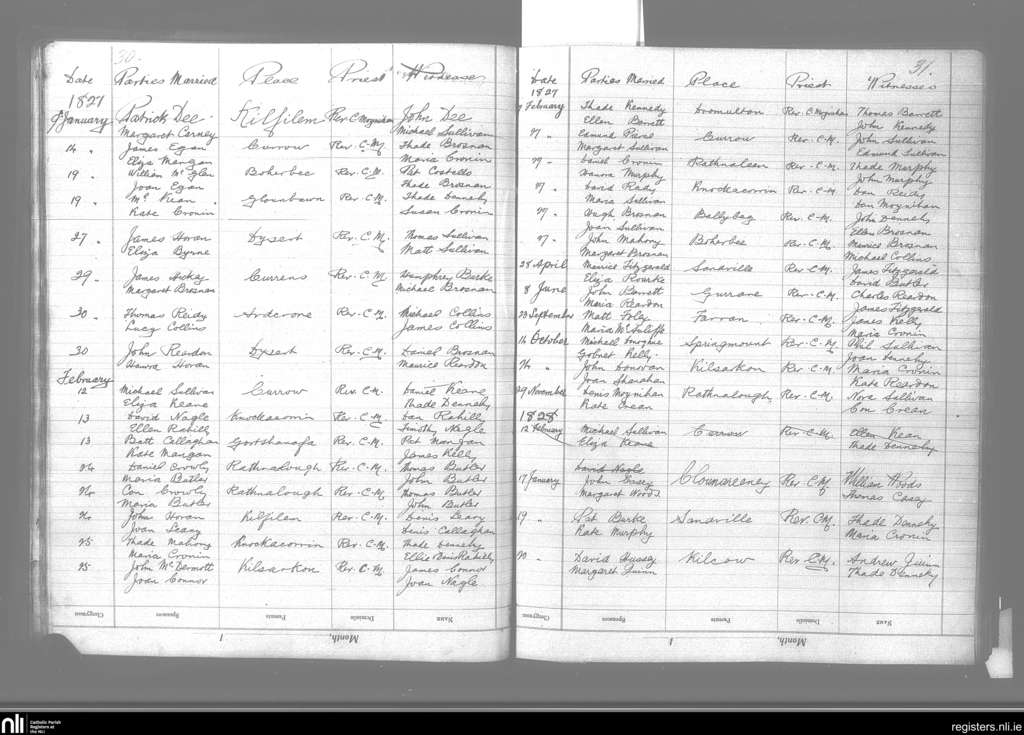 30.
Date Parties Married Place Priest Witnesses
1827
9 January Patrick Dee Kilfilem Rev C Moynihan John Dee
Margaret Carney Michael Sullivan
14 " James Egan Currow Rev. C-M Thade Brosnan
Eliza Mangan Maria Cronin
19 " William Boherbee Rev. C.M. Pat Costello
Joan Egan Thade Brosnan
19 " Glounbawn Rev. C.M. Thade Dennehy
Kate Cronin Susan Cronin
27 " James Horan Dysert Rev. C.M. Thomas Sullivan
Eliza Byrne Matt Sullivan
29 " James Hickey Currens Rev. C-M Humphrey Burke
Margaret Brosnan Michael Brosnan
30 " Thomas Reidy Ardcrone Rev. C.M. Michael Collins
Lucy Collins James Collins
30 John Reardon Dysert Rev. C.M. Daniel Brosnan
Hanora Horan Maurice Reardon
February
12 Michael Sullivan Currow Rev. C.M. Daniel Keane
Eliza Keane Thade Dennehy
13 David Nagle Knockacorrin Rev-C-M Dan Rahilly
Ellen Rahilly Timothy Nagle
13 Batt Callaghan Gortshanafa Rev. C.M. Pat Mangan
Kate Mangan James Kelly
Daniel Crowly Rathnalough Rev. C-M. Thomas Butler
Maria Butler John Butler
Con Crowly Rathnalough Rev. C-M Thomas Butler
Maria Butler John Butler
John Horan Kilfilem Rev. C-M. Denis Leary
Joan Leary Denis Callaghan
25 Thade Mahony Knockacorrin Rev. C-M. Thade Dennehy
Maria Cronin
25 John McDermott Kilsarkon Rev. C-M James Connor
Joan Connor Joan Nagle
Clergyman Sponsors Parents Domicile Name
Month, 1
31.
Date Parties Married Place Priest Witnesses
1827
February Thade Kennedy Dromulton Rev C Moynihan Thomas Barrett
Ellen Barrett John Kennedy
Edmund Currow Rev. C-M. John Sullivan
Margaret Sullivan Edmund Sullivan
Daniel Cronin Rathnaleen Rev-C-M Thade Murphy
Hanora Murphy John Murphy
David Knockacorrin Rev-C-M. Dan Reidy
Maria Sullivan Dan Moynihan
Hugh Brosnan Ballybeg Rev. C-M. John Dennehy
Joan Sullivan Ellen Brosnan
John Mahony Boherbee Rev. C-M. Maurice Brosnan
Margaret Brosnan Michael Collins
28 April Maurice Fitzgerald Sandville Rev. C-M James Fitzgerald
Eliza Rourke David Butler
8 June John Barrett Gurrane Rev. C-M. Charles Reardon
Maria Reardon James Fitzgerald
23 September Matt Foley Farran Rev. C-M. James Kelly
Maria McAuliffe Maria Cronin
14 October Michael Springmount Rev-C-M Phil Sullivan
Gobnet Kelly Joan Dennehy
" John Donovan Kilsarkon Rev. C-M. Maria Cronin
Joan Shanahan Kate Reardon
29 November Denis Moynihan Rathnalough Rev. C-M. Nora Sullivan
Kate Crean Con Crean
1828
12 February Michael Sullivan Currow Rev. C-M. Ellen Kean
Eliza Keane Thade Dennehy
David Nagle
17 January John Casey Clounsreeney Rev C.M William Woods
Margaret Woods Thomas Casey
19 " Pat Burke Sandville Rev. CM. Thade Dennehy
Kate Murphy Maria Cronin
20 " David Hussey Kilcow Rev C.M. Andrew Quinn
Margaret Quinn Thade Dennehy
Clergyman Sponsors Parents Domicile Name
Month, 1
nli Catholic Parish Registers at the NLI
registers.nli.ie